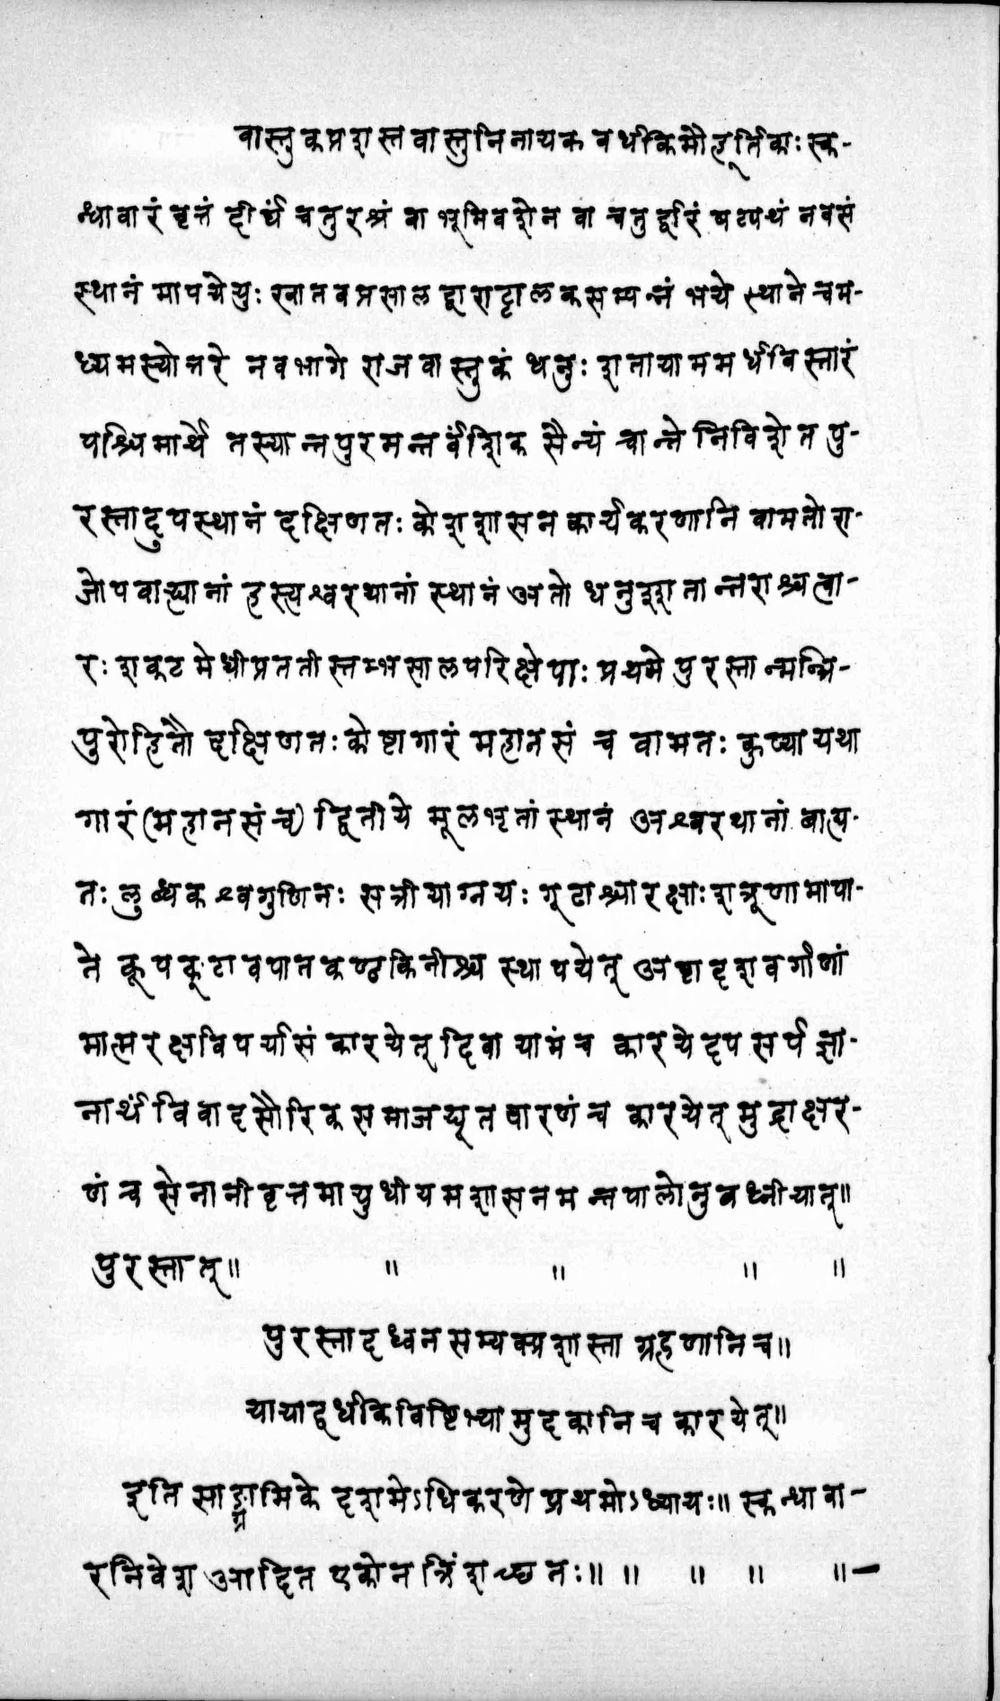 वास्तुकप्रशस्तवास्तुनिनायकवर्धकिमौहूर्तिकाः स्क-
न्धावारं वृत्तं दीर्घं चतुरश्रं वा भूमिवशेन वा चतुर्द्वारं षट्पथं नवसं
स्थानं मापयेयुः खातवप्रसालद्वाराट्टालकसम्पन्नं भये स्थाने चम-
ध्यमस्योत्तरे नवभागे राजवास्तुकं धनुः शतायाममर्धविस्तारं
पश्चिमार्थे तस्यान्तपुरमन्तर्वंशिक सैन्यं चान्ते निविशेत पु-
रस्तादुपस्थानं दक्षिणतः कोशशासनकार्यकरणानि वामतो रा-
जोपवाह्यानां हस्त्यश्वरथानां स्थानं अतो धनुश्शतान्तराश्चत्वा-
रः शकटमेधीप्रततीस्तम्भसालपरिक्षेपाः प्रथमे पुरस्तान्मन्त्रि-
पुरोहितौ दक्षिणतः कोष्टागारं महानसं च वामतः कुप्यायथा
गारं (महानसं च) द्वितीये मूलभृतां स्थानं अश्वरथानां बाह्य-
तः लुब्धकश्वगुणिनः सत्रीयाग्नयः गूढाश्चारक्षाः शत्रूणामापा-
ते कूपकूटावपातकण्ठकिनीश्च स्थापयेत् अष्टादशवर्गाणां
मात्मरक्षविपर्यासं कारयेत् दिवायामं च कारयेदपसर्पज्ञा-
नार्थं विवादसौरिकसमाजद्यूतवारणं च कारयेत् मुद्राक्षर-
णं च सेनानीवृत्तमायुधीयमशासनमन्तपालोनुबध्नीयात्॥
पुरस्तात्॥ ॥ ॥ ॥ ॥
पुरस्तादध्वनसम्यक्प्रशास्ता ग्रहणानि च॥
यायाद्वर्धकिविष्टिभ्यामुदकानि च कारयेत्॥
इति साङ्ग्रामिके दशमेऽधिकरणे प्रथमोऽध्यायः॥ स्कन्धावा-
रनिवेश आदित एकोनत्रिंशच्छतः॥ ॥ ॥ ॥ ॥—